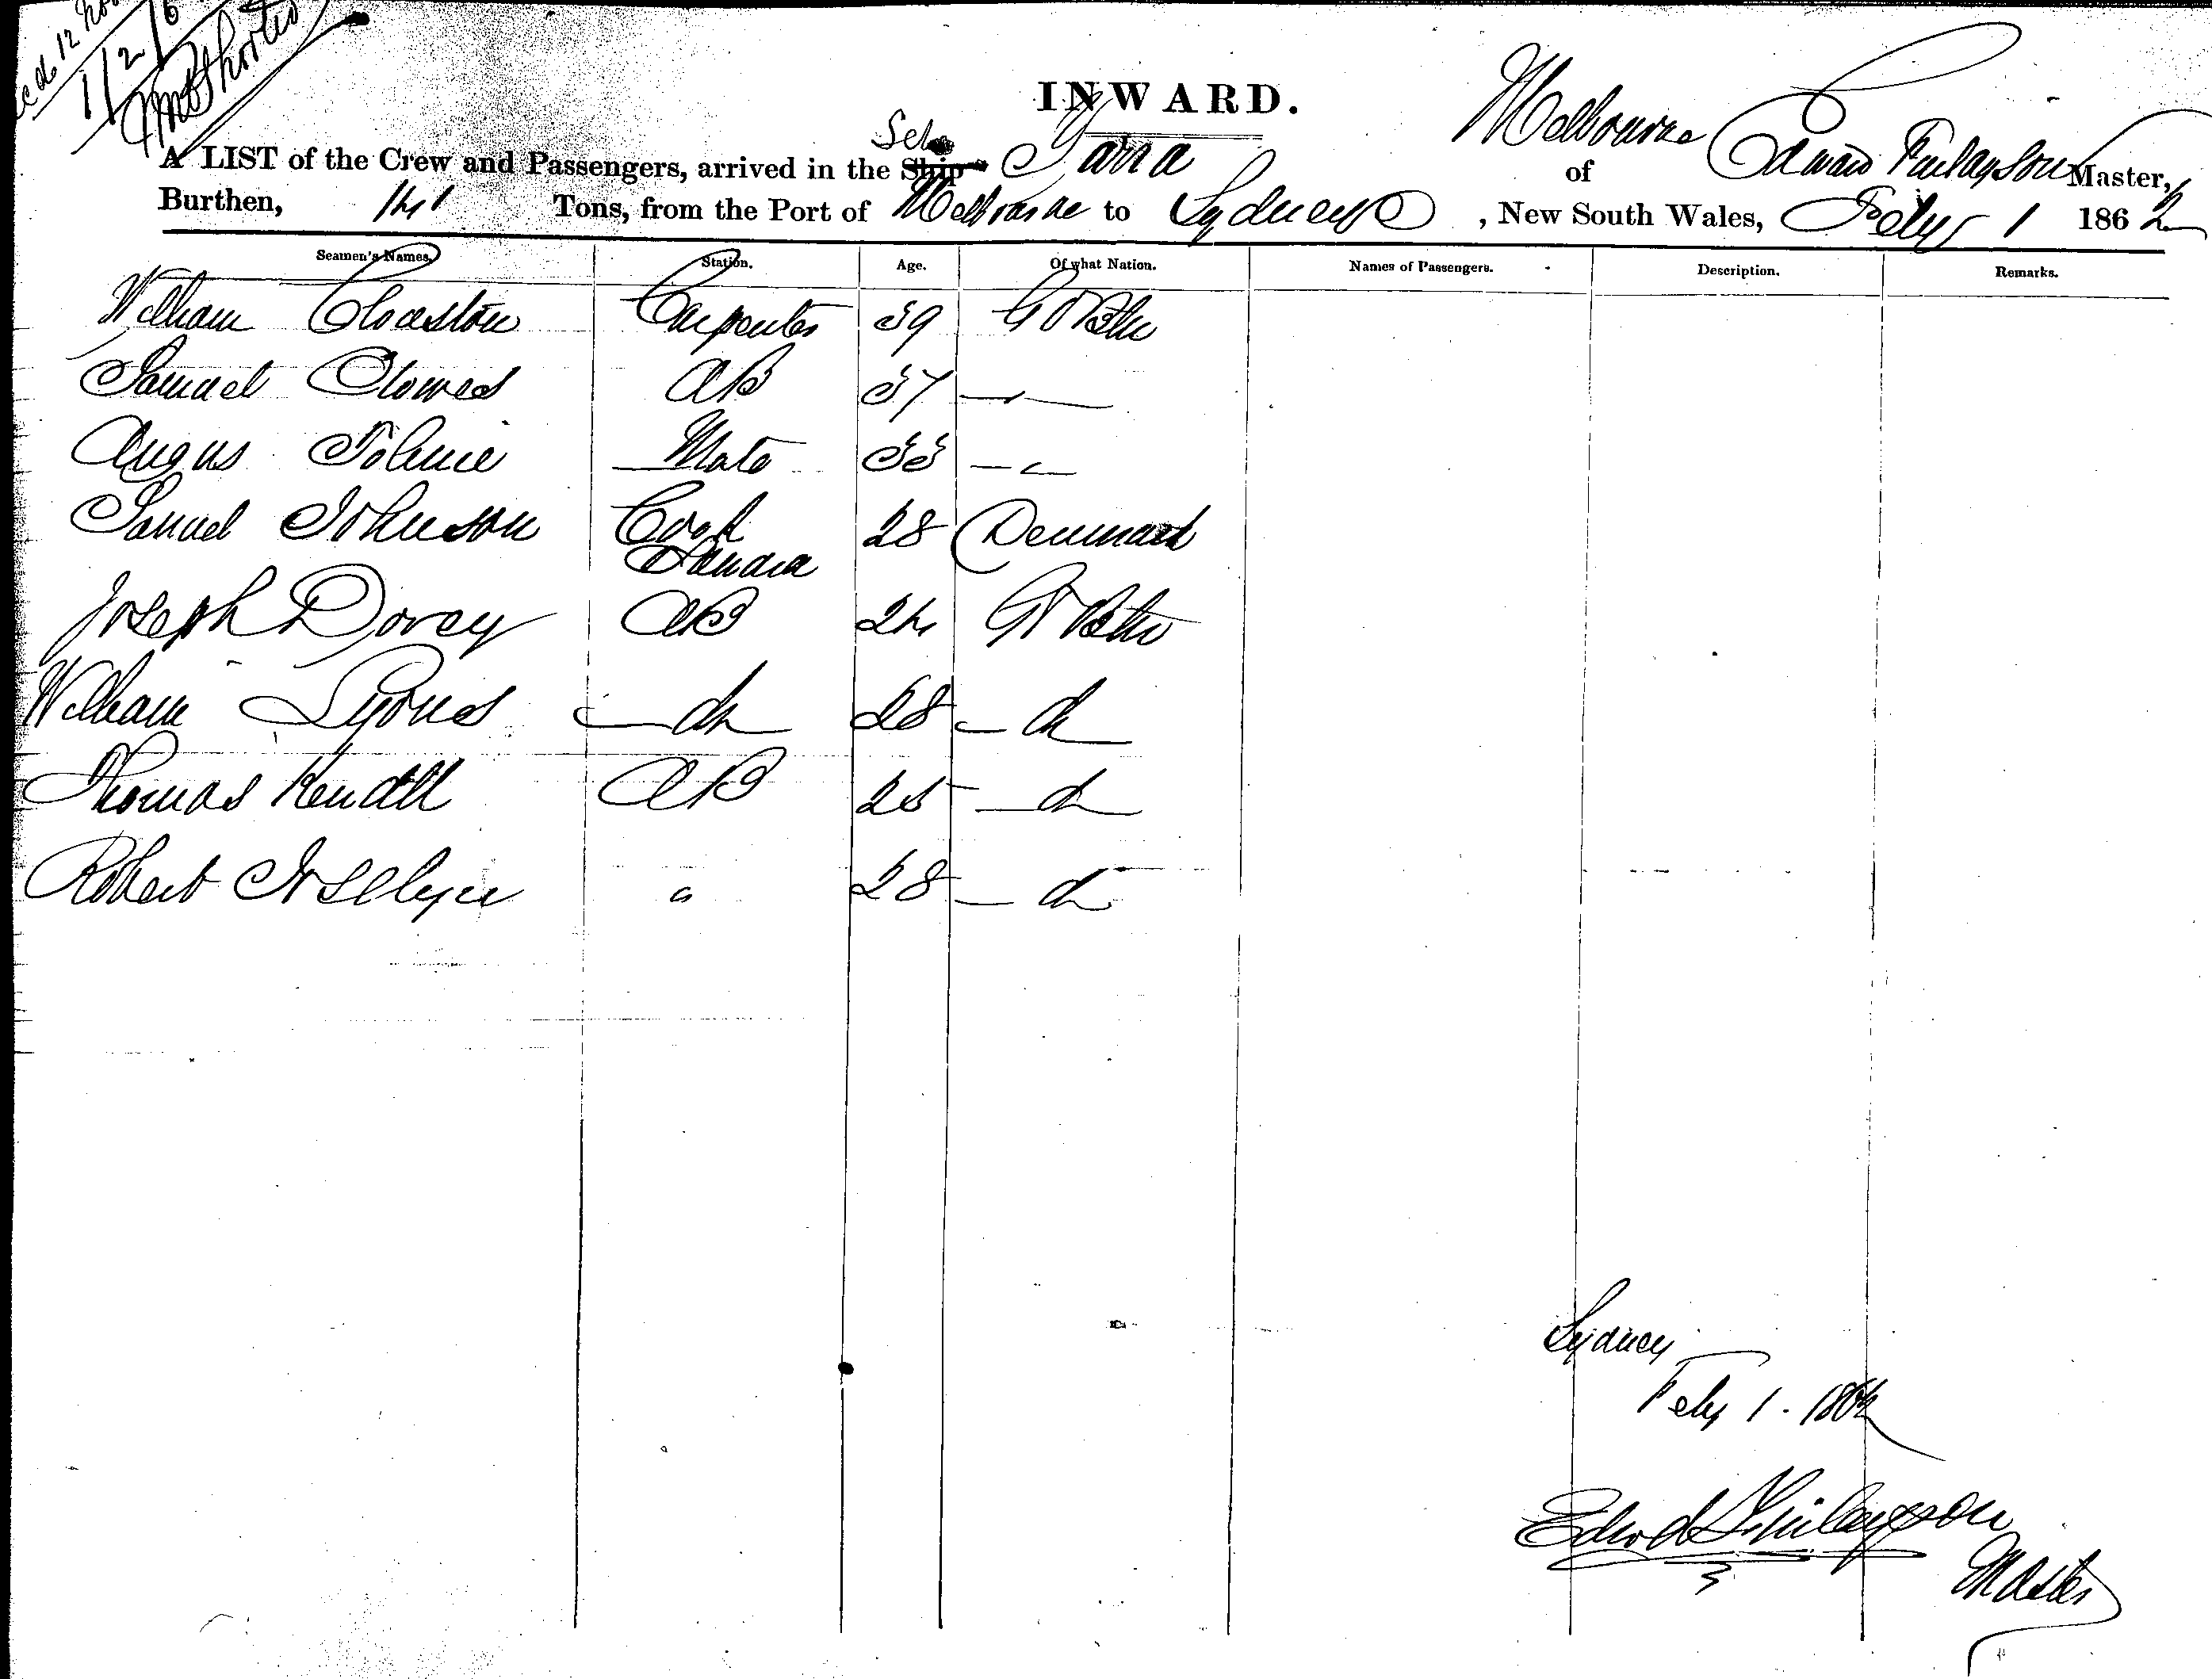 1/2/6
INWARD.
Melbourne
A LIST of the Crew and Passengers, arrived in the Ship Yarra of Edward Finlayson Master,
Burthen, 141 Tons, from the Port of Melbourne to Sydney, New South Wales, Feby 1 1862
Seamen's Names. Station. Age. Of what Nation. Names of Passengers. Description. Remarks.
William Carpenter 39 Gt Btn
Samuel Clowes AB 37 —
Angus Tolmie Mate 33 —
Samuel Johnson Cook 28 Denmark
Joseph Dorey AB 24 Gt Btn
William Lyons — do 28 — do
Thomas Kendell AB 25 — do
Robert 28 — do
Sydney
Feby 1. 1862
Edwd Finlayson
Master